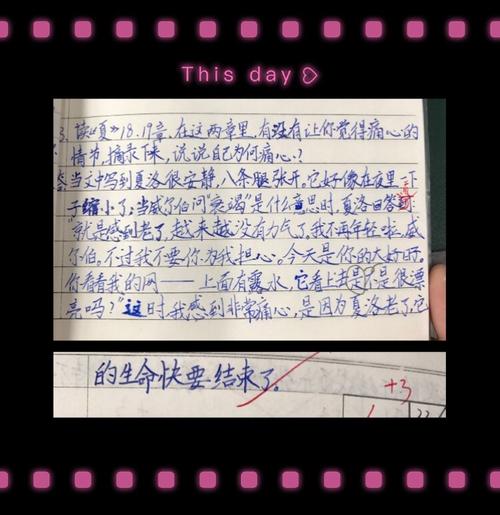 This day
3. 读《夏》18.19章,在这两章里,有没有让你觉得痛心的
情节,摘录下来,说说自己为何痛心?
答当文中写到夏洛很安静,八条腿张开。它好像在夜里一下
子缩小了;当威尔伯问衰竭"是什么意思时,夏洛回答到
"就是感到老了,越来越没有力气了,我不再年轻啦,威
尔伯。不过我不要你为我担心。今天是你的大好时。
你看看我的网——上面有露水,它看上去是不是很漂
亮吗?"这时,我感到非常痛心,是因为夏洛老了,它
的生命快要结束了。
+3